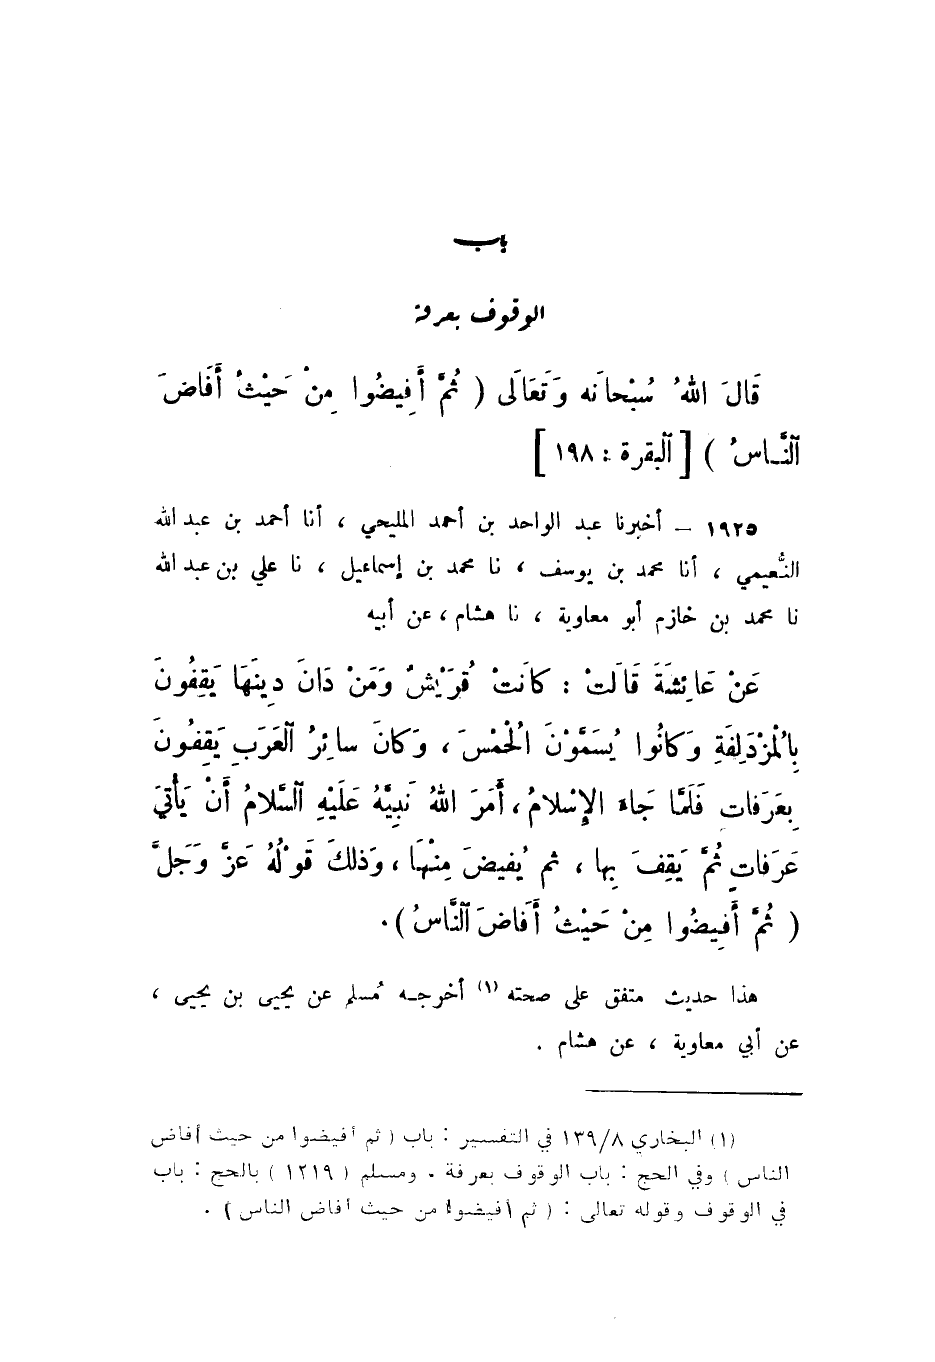 باب
الوقوف بعرفة
قَالَ اللهُ سُبْحَانَه وَتَعَالَى ( ثُمَّ أَفِيضُوا مِنْ حَيْثُ أَفَاضَ
النَّاسُ ) [ البقرة : ١٩٨ ]
١٩٢٥ – أخبرنا عبد الواحد بن أحمد المليحي ، أنا أحمد بن عبد الله
النُّعيمي ، أنا محمد بن يوسف ، نا محمد بن إسماعيل ، نا علي بن عبد الله
نا محمد بن خازم أبو معاوية ، نا هشام ، عن أبيه
عَنْ عَائِشَةَ قَالَتْ : كَانَتْ قُرَيْشٌ وَمَنْ دَانَ دِينَهَا يَقِفُونَ
بِالْمُزْدَلِفَةِ وَكَانُوا يُسَمَّوْنَ الْحُمْسَ ، وَكَانَ سائِرُ العَرَبِ يَقِفُونَ
بِعَرَفَاتٍ فَلَمَّا جَاءَ الإِسْلامُ ، أَمَرَ اللهُ نَبِيَّهُ عَلَيْهِ السَّلامُ أَنْ يَأْتِيَ
عَرَفَاتٍ ثُمَّ يَقِفَ بِها ، ثم يُفِيضَ مِنْهَا ، وَذلكَ قَوْلُهُ عَزَّ وَجَلَّ
( ثُمَّ أَفِيضُوا مِنْ حَيْثُ أَفَاضَ النَّاسُ ) .
هذا حديث متفق على صحته (١) أخرجه مُسلم عن يحيى بن يحيى ،
عن أبي معاوية ، عن هشام .
(١) البخاري ١٣٩/٨ في التفسير : باب ( ثم أفيضوا من حيث أفاض
الناس ) وفي الحج : باب الوقوف بعرفة . ومسلم ( ١٢١٩ ) بالحج : باب
في الوقوف وقوله تعالى : ( ثم أفيضوا من حيث أفاض الناس ) .